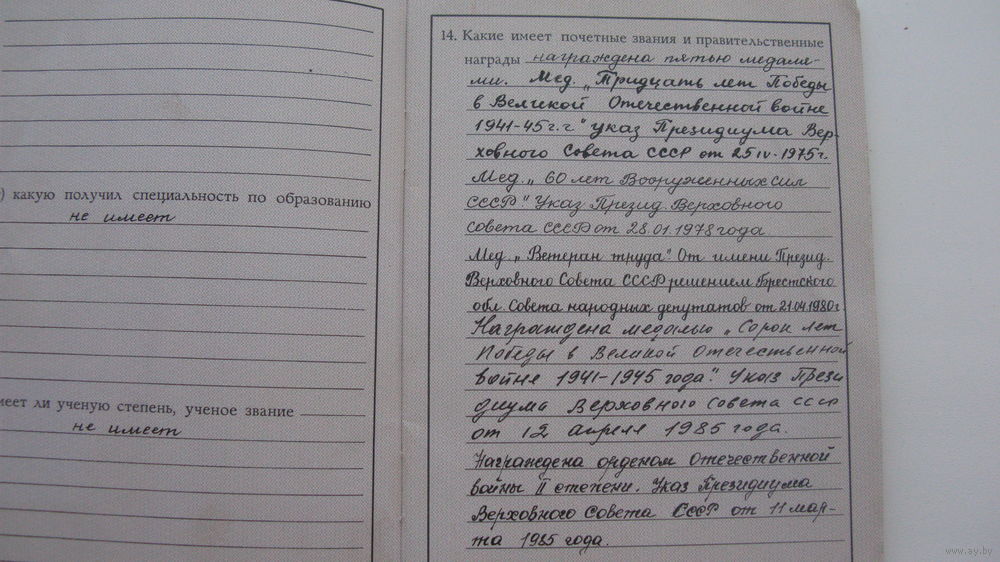 ) какую получил специальность по образованию
не имеет
меет ли ученую степень, ученое звание
не имеет
14. Какие имеет почетные звания и правительственные
награды награждена пятью медаля-
ми. Мед. „Тридцать лет Победы
в Великой Отечественной войне
1941-45г.г" указ Президиума Вер-
ховного Совета СССР от 25 IV-1975г.
Мед. „60 лет Вооруженных сил
СССР" Указ Презид. Верховного
совета СССР от 28.01.1978 года
Мед. „Ветеран труда" От имени Презид.
Верховного Совета СССР решением Брестского
обл. Совета народных депутатов от 21.04.1980г
Награждена медалью „Сорок лет
Победы в Великой Отечественной
войне 1941-1945 года". Указ Прези
диума Верховного совета СССР
от 12 апреля 1985 года.
Награждена орденом Отечественной
войны II степени. Указ Президиума
Верховного Совета СССР от 11 мар-
та 1985 года.
www.ay.by